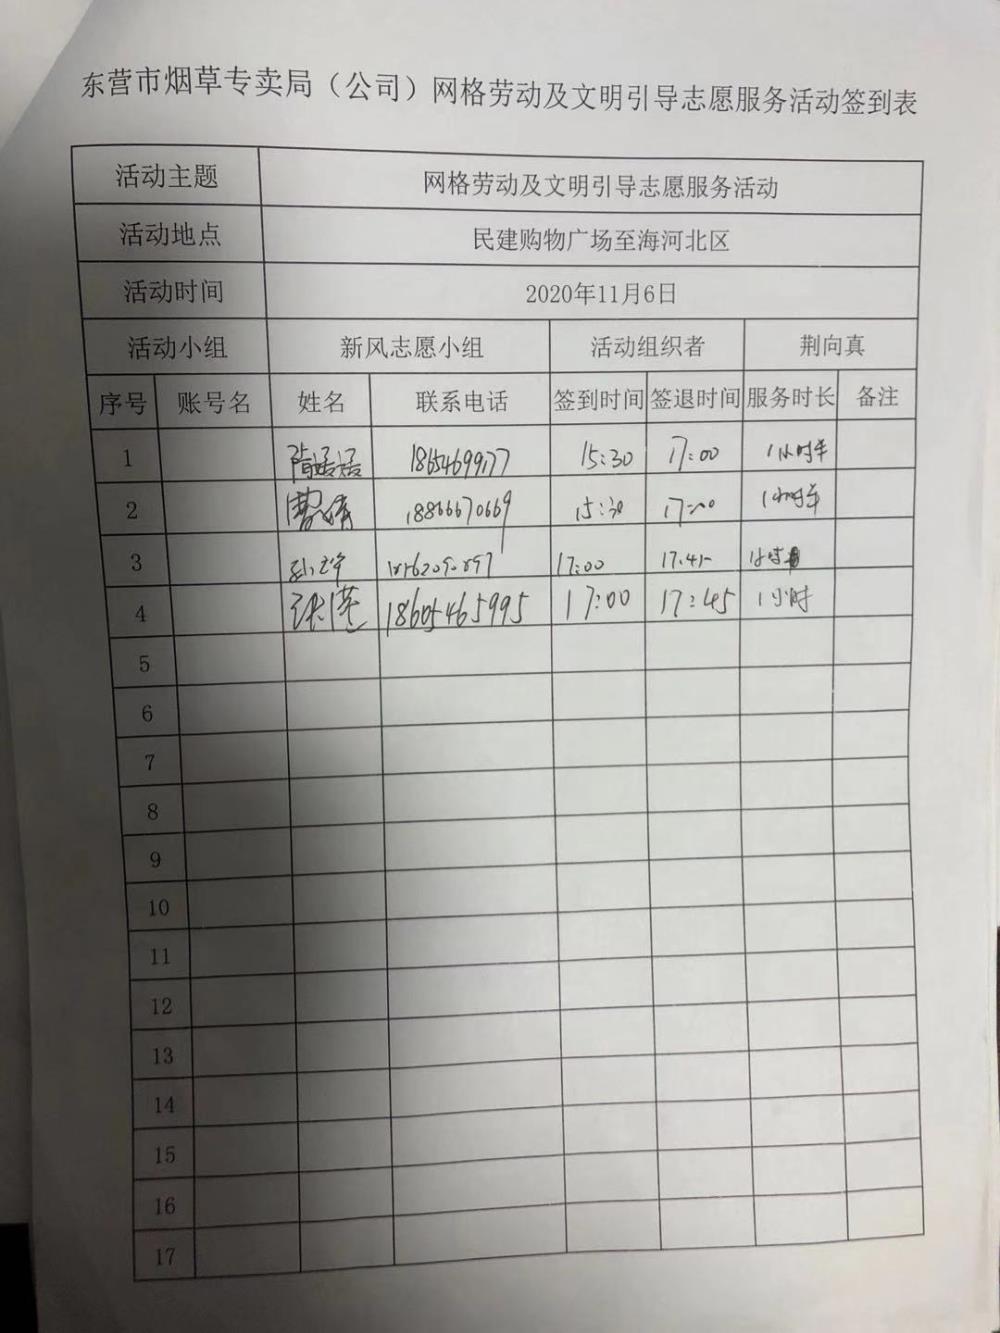 东营市烟草专卖局（公司）网格劳动及文明引导志愿服务活动签到表
活动主题 网格劳动及文明引导志愿服务活动
活动地点 民建购物广场至海河北区
活动时间 2020年11月6日
活动小组 新风志愿小组 活动组织者 荆向真
序号 账号名 姓名 联系电话 签到时间 签退时间 服务时长 备注
1 15:30 17:00 1小时半
2 曹 18866670669 15:30 17:00 1小时半
3 孙 17:00 17:45
4 张 18605465995 17:00 17:45 1小时
5
6
7
8
9
10
11
12
13
14
15
16
17